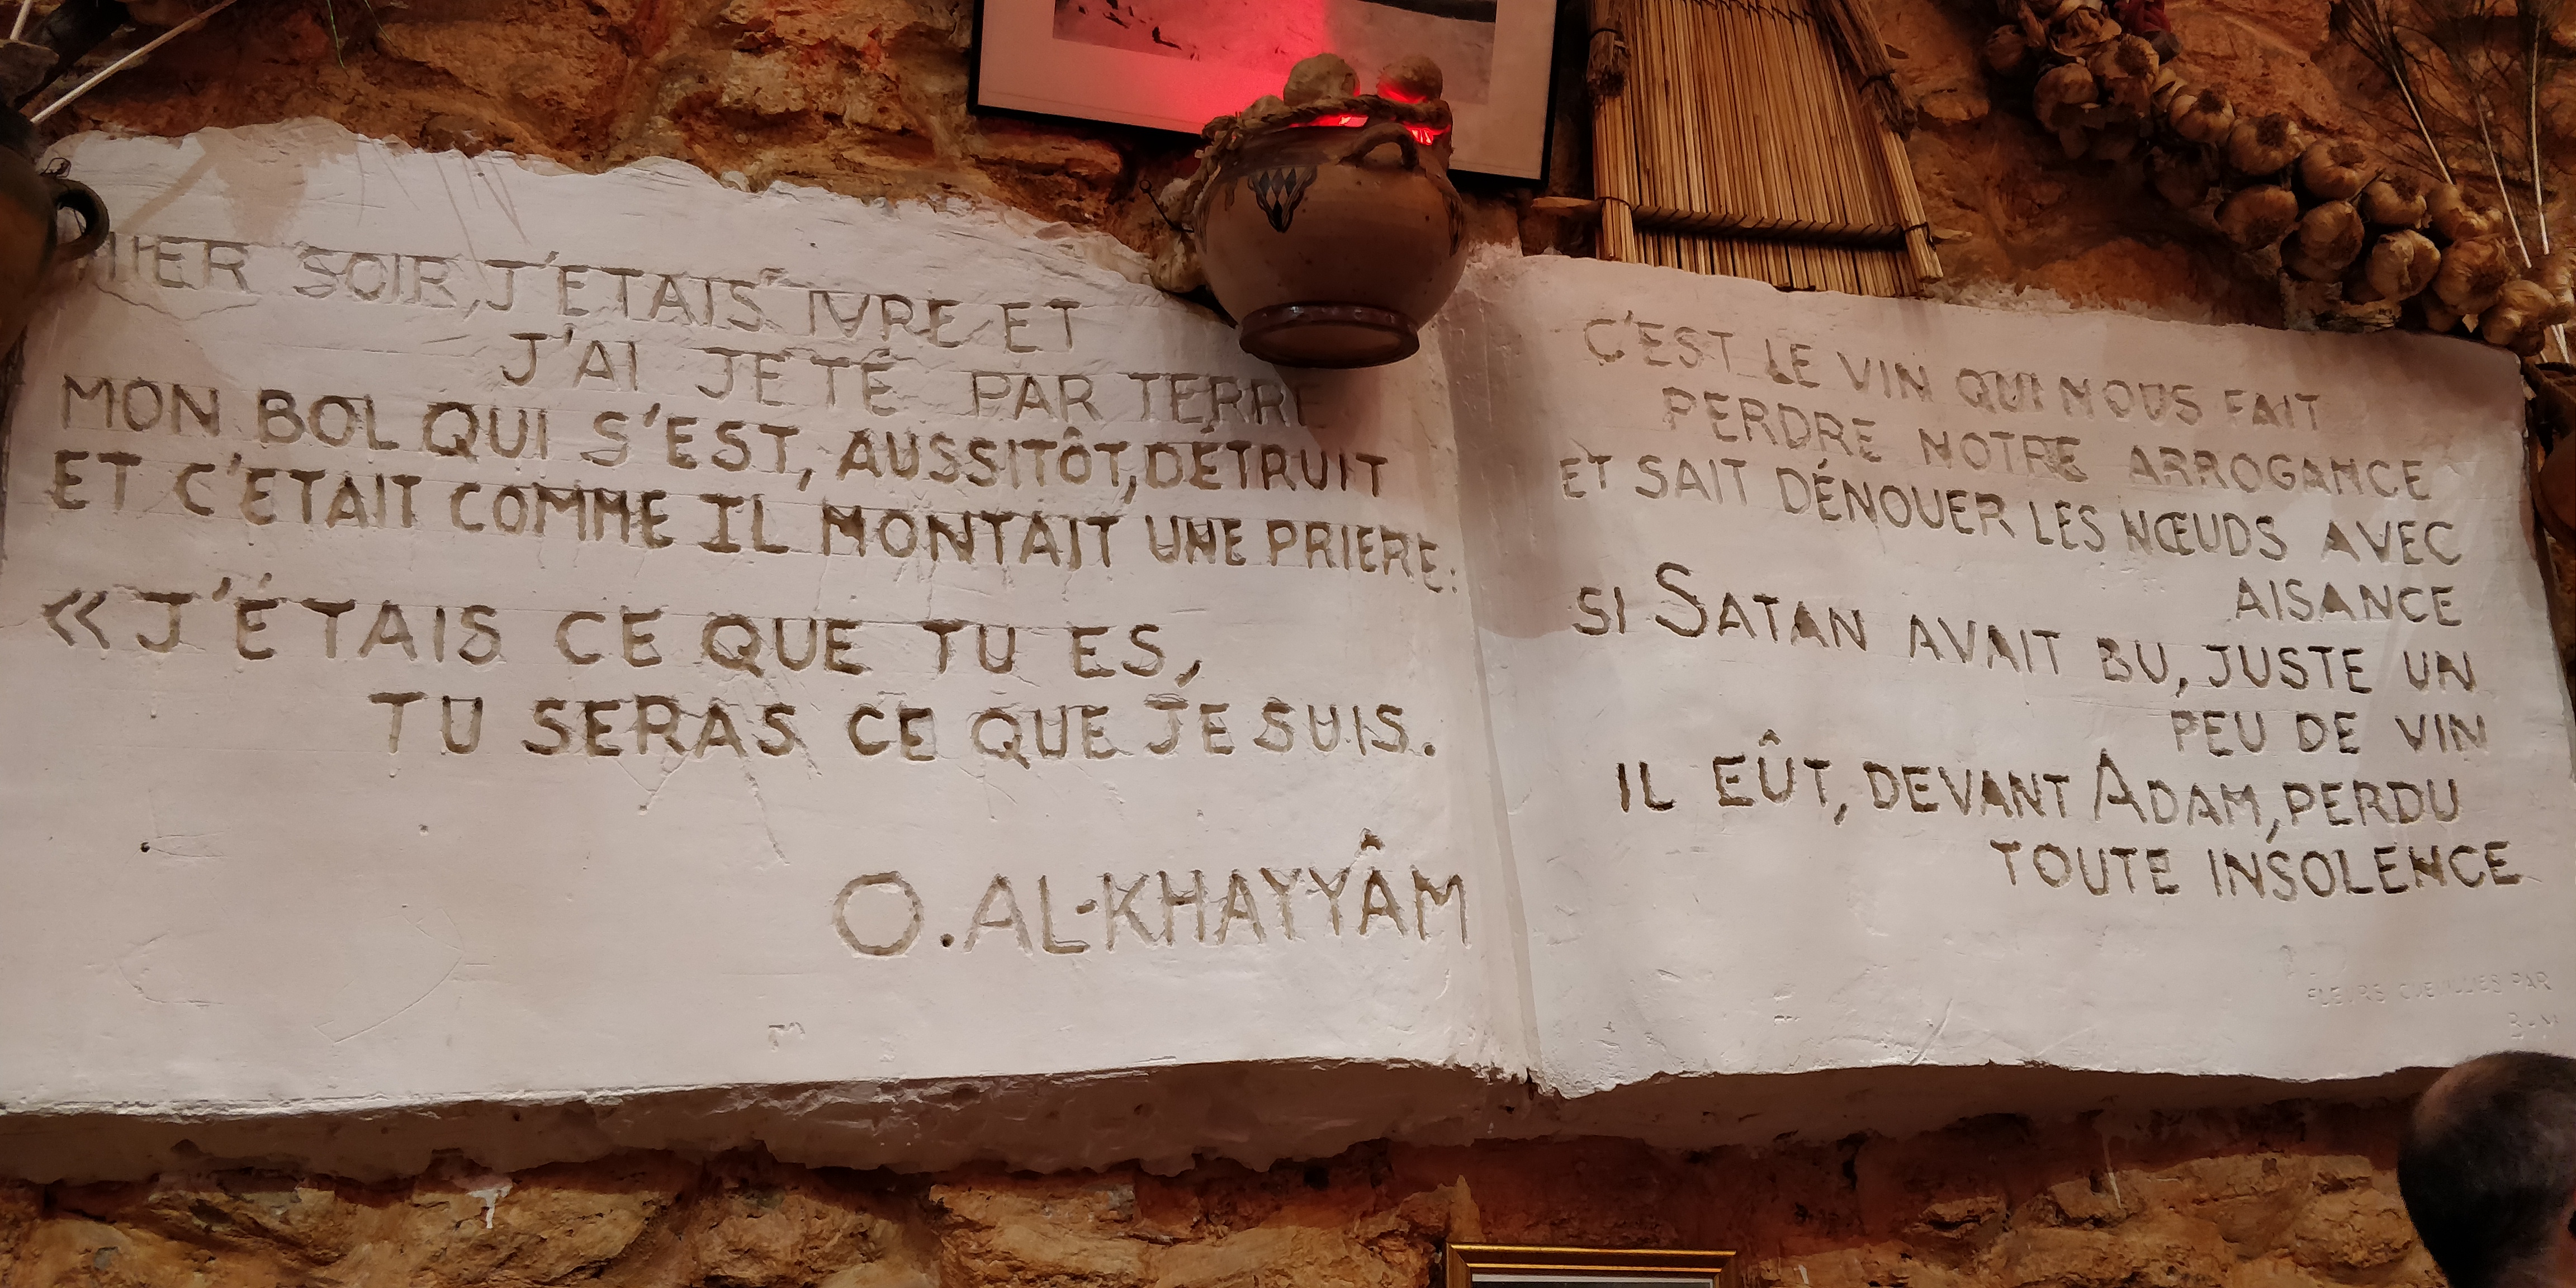 HIER SOIR, J'ETAIS IVRE ET
J'AI JETÉ PAR TERRE
MON BOL QUI S'EST, AUSSITÔT, DÉTRUIT
ET C'ETAIT COMME IL MONTAIT UNE PRIERE:
« J'ÉTAIS CE QUE TU ES,
TU SERAS CE QUE JE SUIS.
O. AL-KHAYYÂM
C'EST LE VIN QUI NOUS FAIT
PERDRE NOTRE ARROGANCE
ET SAIT DÉNOUER LES NŒUDS AVEC
AISANCE
SI SATAN AVAIT BU, JUSTE UN
PEU DE VIN
IL EÛT, DEVANT ADAM, PERDU
TOUTE INSOLENCE
FLEURS CUEILLIES PAR